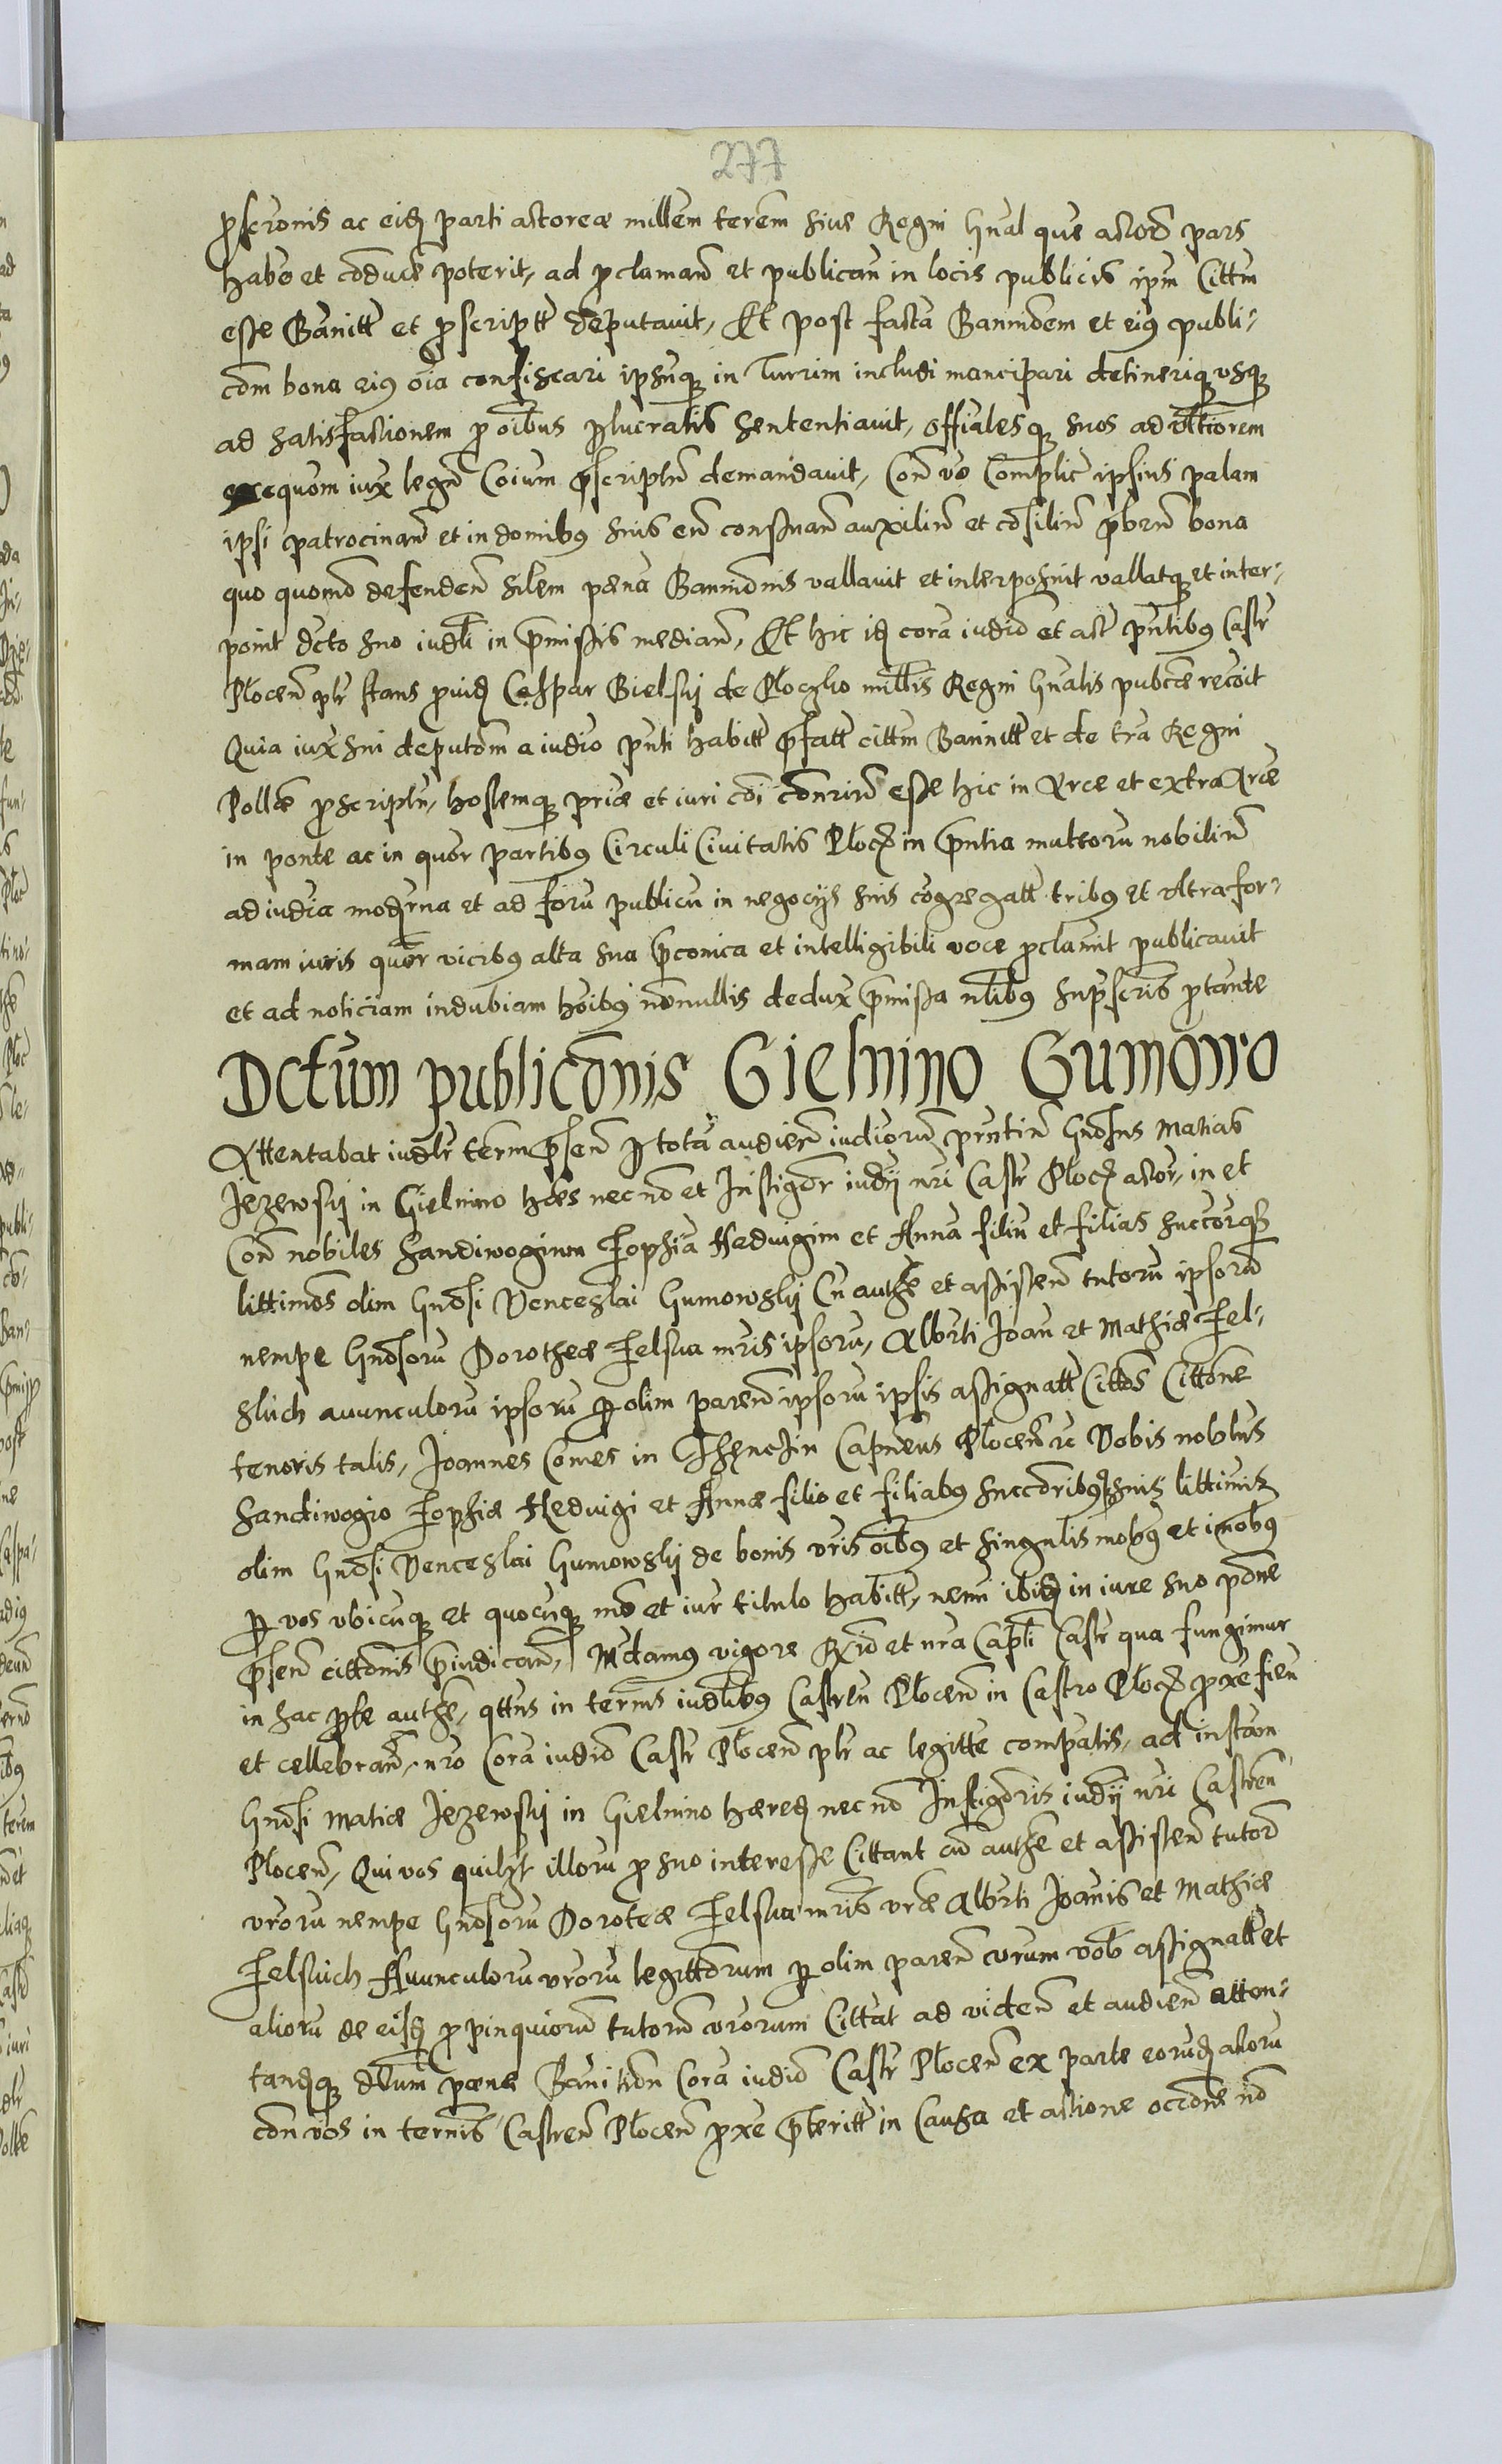 277
pscronis ac eidẽ parti actoreæ millem terem siue Regni Gnal que actor pars
habẽ et cõducẽ poterit, ad proclamand et publicand in locis publicis ipm Cittm
esse Bannitt et proscriptt deputauit, Et post facta Bannidem et eius publi-
com bona eius oia confiscari ipsumq in Turrim includi mancipari detineriq usq
ad satisfactionem pro oibus plucratis sententiauit, offialesq suos ad ulteriorem
exequom iux legum Coium prescriptum demandauit, Con uo Complic ipsius palam
ipsi patrocinand et in domibus suis eum conseruand auxilium et cosilium prebend bona
quo quomo defendend silem pæna Bannidonis vallauit et interposuit vallatq et inter-
point dcto suo iudli in premissis mediand, Et hic id cora iudio et actis pntibus Castr
Plocen plr stans prouid Caspar Bielski de Ploczko millis Regni Gnalis publce recoit
Quia iux sui deputom a iudio pnti habitt prefatt cittm Bannitt et de tra Regni
Pollæ proscriptu, hostemq priæ et iuri coi conrium esse hic in Arce et extra Arce
in ponte ac in quor partibus Circuli Ciuitatis Plocẽ in prentia multoru nobilium
ad iudia moderna et ad foru publicu in negocijs suis cogregatt tribus et ultra for-
mam iuris quor vicibus alta sua preconica et intelligibili voce proclauit publicauit
et ad noticiam indubiam hoibus nonnullis dedux premissa nlibus suprascris protante
Dctum publicõnis Gielnino Gumowo
Attentabat iudlr term presen p tota audien iudiorum prntiu Gnosus Matias
Jezewski in Gielnino hæs nec no et Instigor iudij nri Castr Plocẽ actor, in et
Con nobiles Sandiwogium Zophia Hedvigim et Anna filiu et filias succorq
littimos olim Gnosi Venceslai Gumowskij Cu authe et assisten tutoru ipsoru
nempe Gnosoru Dorotheæ Zelska mris ipsoru, Alberti Joan et Mathiæ Zel-
skich auunculoru ipsoru p olim paren ipsoru ipsis assignatt Cittos Cittone
tenoris talis, Joannes Comes in Thenczin Capneus Plocen rc Vobis nobilus
Sandiwogio Zophiæ Hedvigi et Annæ filio et filiabus succoribusq suis littimis
olim Gnosi Venceslai Gumowskij de bonis vris oibus et singulis mobus et imobus
p vos ubicuq et quocuq mo et iur titulo habitt, nemi ibid in iure suo pone
presen cittonis preiudicand, Mdamus vigore Rxio et nra Capli Castr qua fungimur
in hac pte authe, qttus in termis iudlibus Castren Plocen in Castro Plocẽ proxe fien
et cellebrand, nro Cora iudio Castr Plocen plr ac legitte compatis, ad instam
Gnosi Matiæ Jezewskij in Gielnino hæred nec no Instigoris iudij nri Castren
Plocen, Qui vos quilzt illoru pro suo interesse Cittant cu authe et assisten tutor
vroru nempe Gnosoru Doroteæ Zelska mris vræ Alberti Joanis et Mathiæ
Zelskich Auunculoru vroru legittorum p olim paren vrum vob assignatt et
alioru de eisd propinquioru tutoru vrorum Cittat ad viden et audien atten-
tandq dctum pœnæ Banition Cora iudio Castr Plocen ex parte eorud actoru
con vos in termis Castren Plocen proxe preteritt in Causa et actione occone no